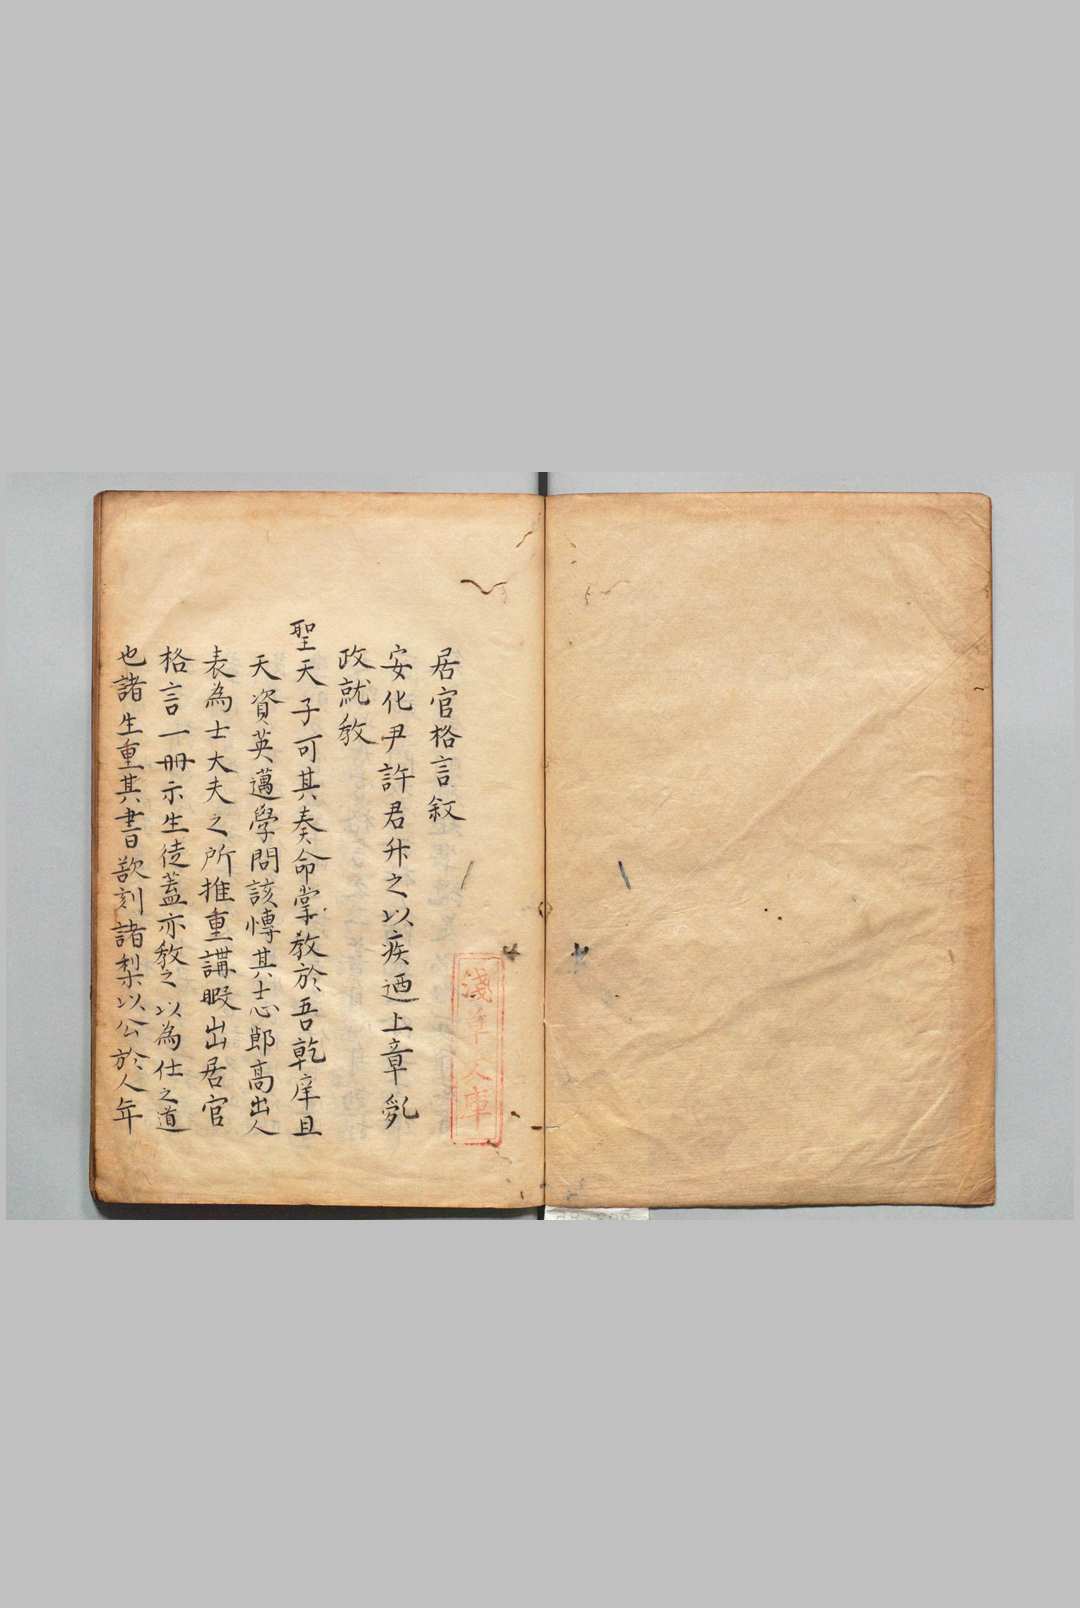 居官格言叙
安化尹許君升之以疾迺上章乱
政就教
聖天子可其奏命掌教於吾乾庠且
天資英邁學問該愽其志節高出人
表為士大夫之所推重講暇出居官
格言一冊示生徒蓋亦教之以為仕之道
也諸生重其書欲刻諸梨以公於人年
淺草文庫